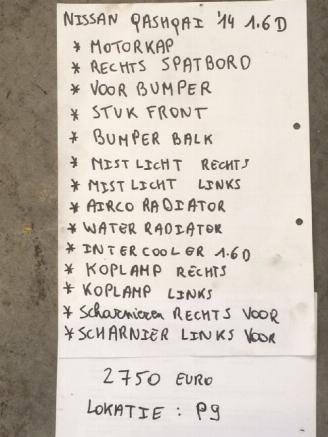 NISSAN QASHQAI '14 1.6D
* MOTORKAP
* RECHTS SPATBORD
* VOOR BUMPER
* STUK FRONT
* BUMPER BALK
* MISTLICHT RECHTS
* MISTLICHT LINKS
* AIRCO RADIATOR
* WATER RADIATOR
* INTERCOOLER 1.6D
* KOPLAMP RECHTS
* KOPLAMP LINKS
* Scharnieren RECHTS VOOR
* SCHARNIER LINKS VOOR
2750 EURO
LOKATIE : P9